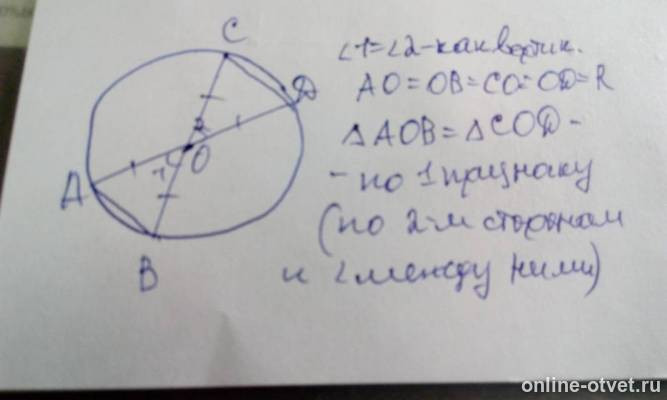 C
D
2
O
1
A
B
∠1=∠2-как вертик.
AO=OB=CO=OD=R
△AOB=△COD-
-по 1 признаку
(по 2-м сторонам
и ∠между ними)
online-otvet.ru